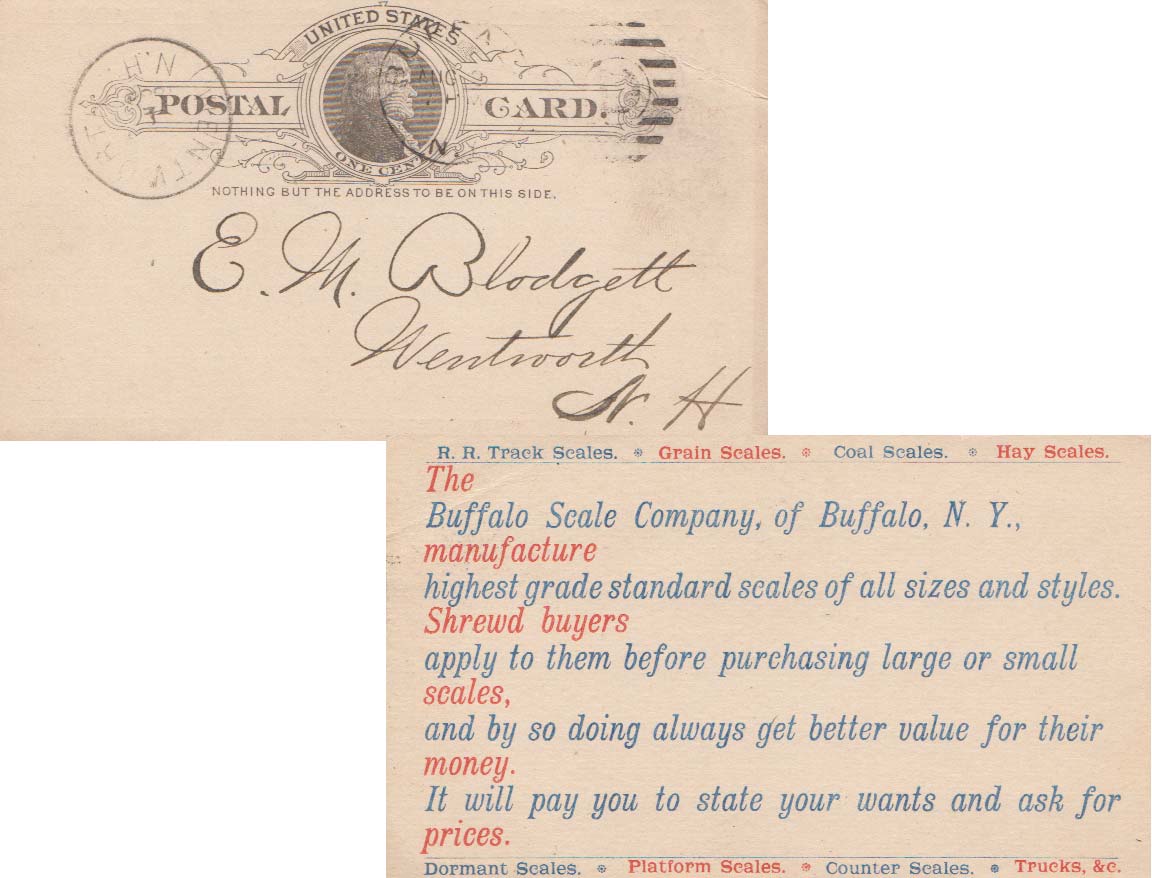 UNITED STATES
POSTAL CARD.
ONE CENT
NOTHING BUT THE ADDRESS TO BE ON THIS SIDE.
WENTWORTH N.H.
AUG
N.
E. M. Blodgett
Wentworth
N. H
R. R. Track Scales. * Grain Scales. * Coal Scales. * Hay Scales.
The
Buffalo Scale Company, of Buffalo, N. Y.,
manufacture
highest grade standard scales of all sizes and styles.
Shrewd buyers
apply to them before purchasing large or small
scales,
and by so doing always get better value for their
money.
It will pay you to state your wants and ask for
prices.
Dormant Scales. * Platform Scales. * Counter Scales. * Trucks, &c.